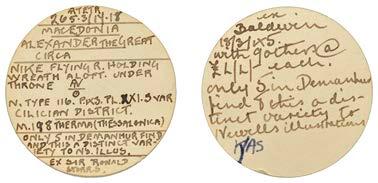 265.3/17.18
MACEDONIA
ALEXANDER THE GREAT
CIRCA
NIKE FLYING R. HOLDING
WREATH ALOFT. UNDER
THRONE
N. TYPE 116. PX3. PL. XXI.5 VAR
CILICIAN DISTRICT.
M. 198 THERMA (THESSALONICA)
ONLY 5 IN DEMANHUR FIND
AND THIS A DISTINCT VAR-
IETY TO N'S. ILLUS.
EX SIR RONALD
STORRS.
ex.
Baldwin
with 9 others @
£1/1/ each.
only 5 in Demanhur
find & this a dis-
tinct variety to
Newells illustrations